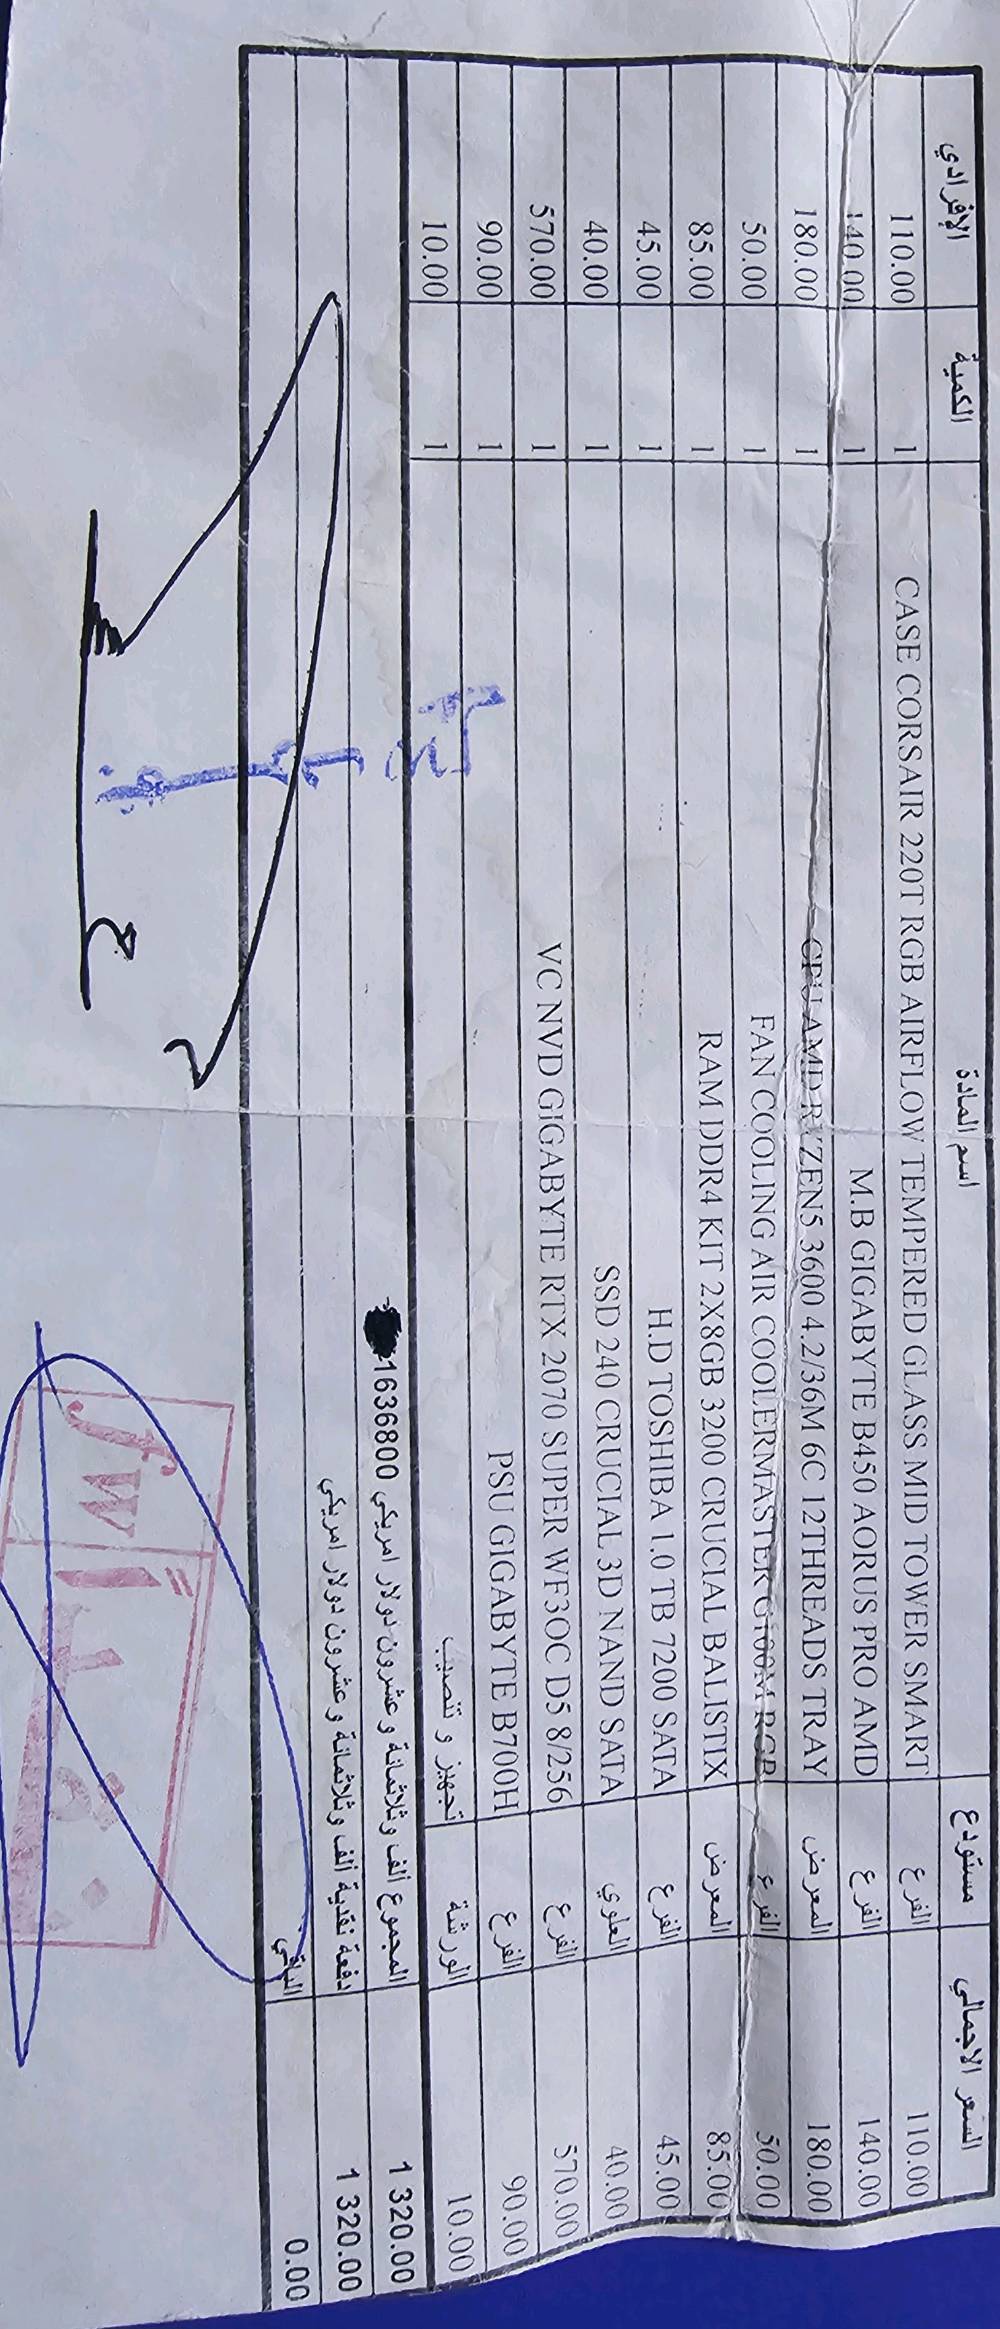 الإفرادي الكمية اسم المادة مستودع السعر الاجمالي
110.00 1 CASE CORSAIR 220T RGB AIRFLOW TEMPERED GLASS MID TOWER SMART الفرع 110.00
140.00 1 M.B GIGABYTE B450 AORUS PRO AMD الفرع 140.00
180.00 1 CPU AMD RYZEN5 3600 4.2/36M 6C 12THREADS TRAY المعرض 180.00
50.00 1 FAN COOLING AIR COOLERMASTER G100M RGB الفرع 50.00
85.00 1 RAM DDR4 KIT 2X8GB 3200 CRUCIAL BALISTIX المعرض 85.00
45.00 1 H.D TOSHIBA 1.0 TB 7200 SATA الفرع 45.00
40.00 1 SSD 240 CRUCIAL 3D NAND SATA العلوي 40.00
570.00 1 VC NVD GIGABYTE RTX 2070 SUPER WF3OC D5 8/256 الفرع 570.00
90.00 1 PSU GIGABYTE B700H الفرع 90.00
10.00 1 تجهيز و تنصيب الورشة 10.00
المجموع ألف وثلاثمائة و عشرون دولار امريكي 1636800 1 320.00
دفعة نقدية ألف وثلاثمائة و عشرون دولار امريكي 1 320.00
الباقي 0.00